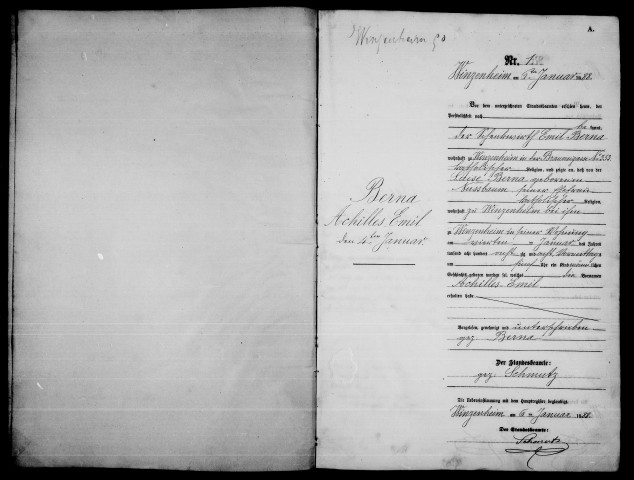 A.
Winzenheim
Nr. 1.
Winzenheim am 6ten Januar 1888.
Vor dem unterzeichneten Standesbeamten erschien heute, der
Persönlichkeit nach
be kannt,
der Emil Berna
wohnhaft zu Winzenheim in der Braunengasse No 352
katholischer Religion, und zeigte an, daß von der
Luise Berna geborenen
Nussbaum seiner Ehefrau
katholischer Religion,
wohnhaft zu Winzenheim bei ihm
zu Winzenheim in seiner Wohnung
am vierten Januar des Jahres
tausend acht hundert achtzig und acht Vormittags
um fünf Uhr ein Kind männlichen
Geschlechts geboren worden sei, welches die Vornamen
Achilles Emil
erhalten habe
Vorgelesen, genehmigt und unterschrieben
gez. Berna
Der Standesbeamte:
gez. Schmutz
Die Uebereinstimmung mit dem Hauptregister beglaubigt.
Winzenheim am 6ten Januar 1888.
Der Standesbeamte:
Schmutz
Berna
Achilles Emil
den 4ten Januar